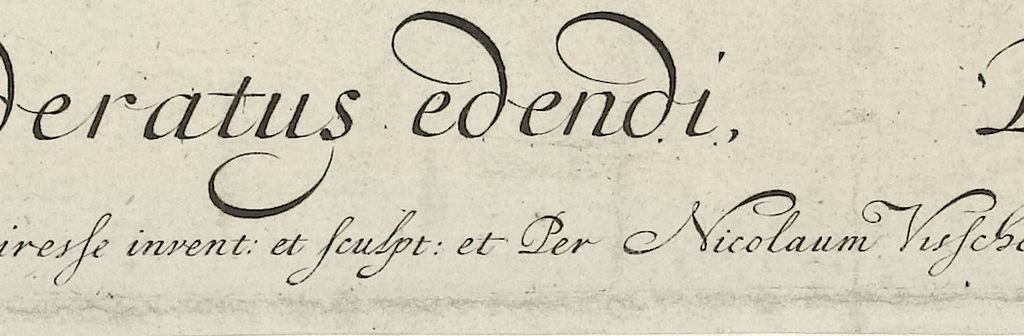 deratus edendi,
iresse invent: et sculpt: et Per Nicolaum Vissche